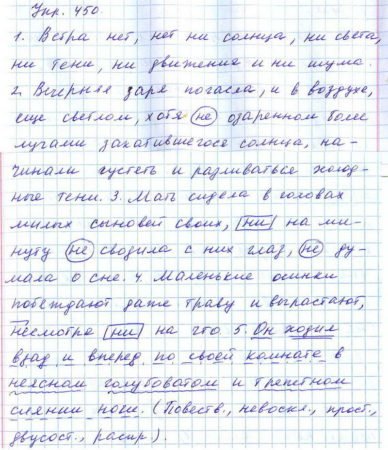 Упр. 450
1. Ветра нет, нет ни солнца, ни света,
ни тени, ни движения и ни шума.
2. Вечерняя заря погасла, и в воздухе,
еще светлом, хотя не озаренном более
лучами закатившегося солнца, на-
чинали густеть и разливаться холод-
ные тени. 3. Мать сидела в головах
милых сыновей своих, ни на ми-
нуту не сводила с них глаз, не ду-
мала о сне. 4. Маленькие осинки
побеждают даже траву и вырастают,
несмотря ни на что 5. Он ходил
взад и вперед по своей комнате в
неясном голубоватом и трепетном
сиянии ночи. (Повеств., невоскл., прост.,
двусост., распр.).